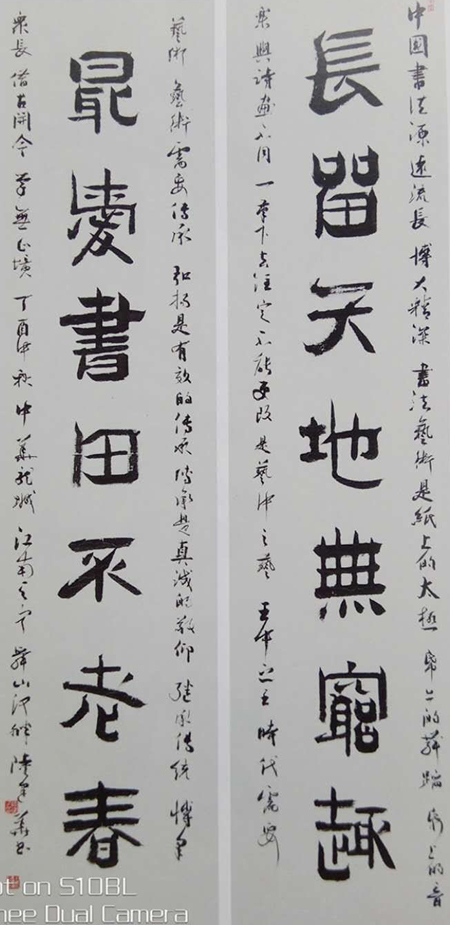 中国書法源遠流長 博大精深 書法藝術是紙上的太極 上的舞蹈 上的音
長留天地無窮趣
樂與詩畫不同 一筆下去注定不能更改 是藝中之藝 王中之王 時代需要
藝術 藝術需要傳承 弘揚是有效的傳承 傳承是真誠的敬仰 繼承傳統 博采
最愛書田不老春
眾長 借古開今 学無止境 丁酉中秋 中華龍城 江南 舜山 陸 華書
ot on S10BL
nee Dual Camera